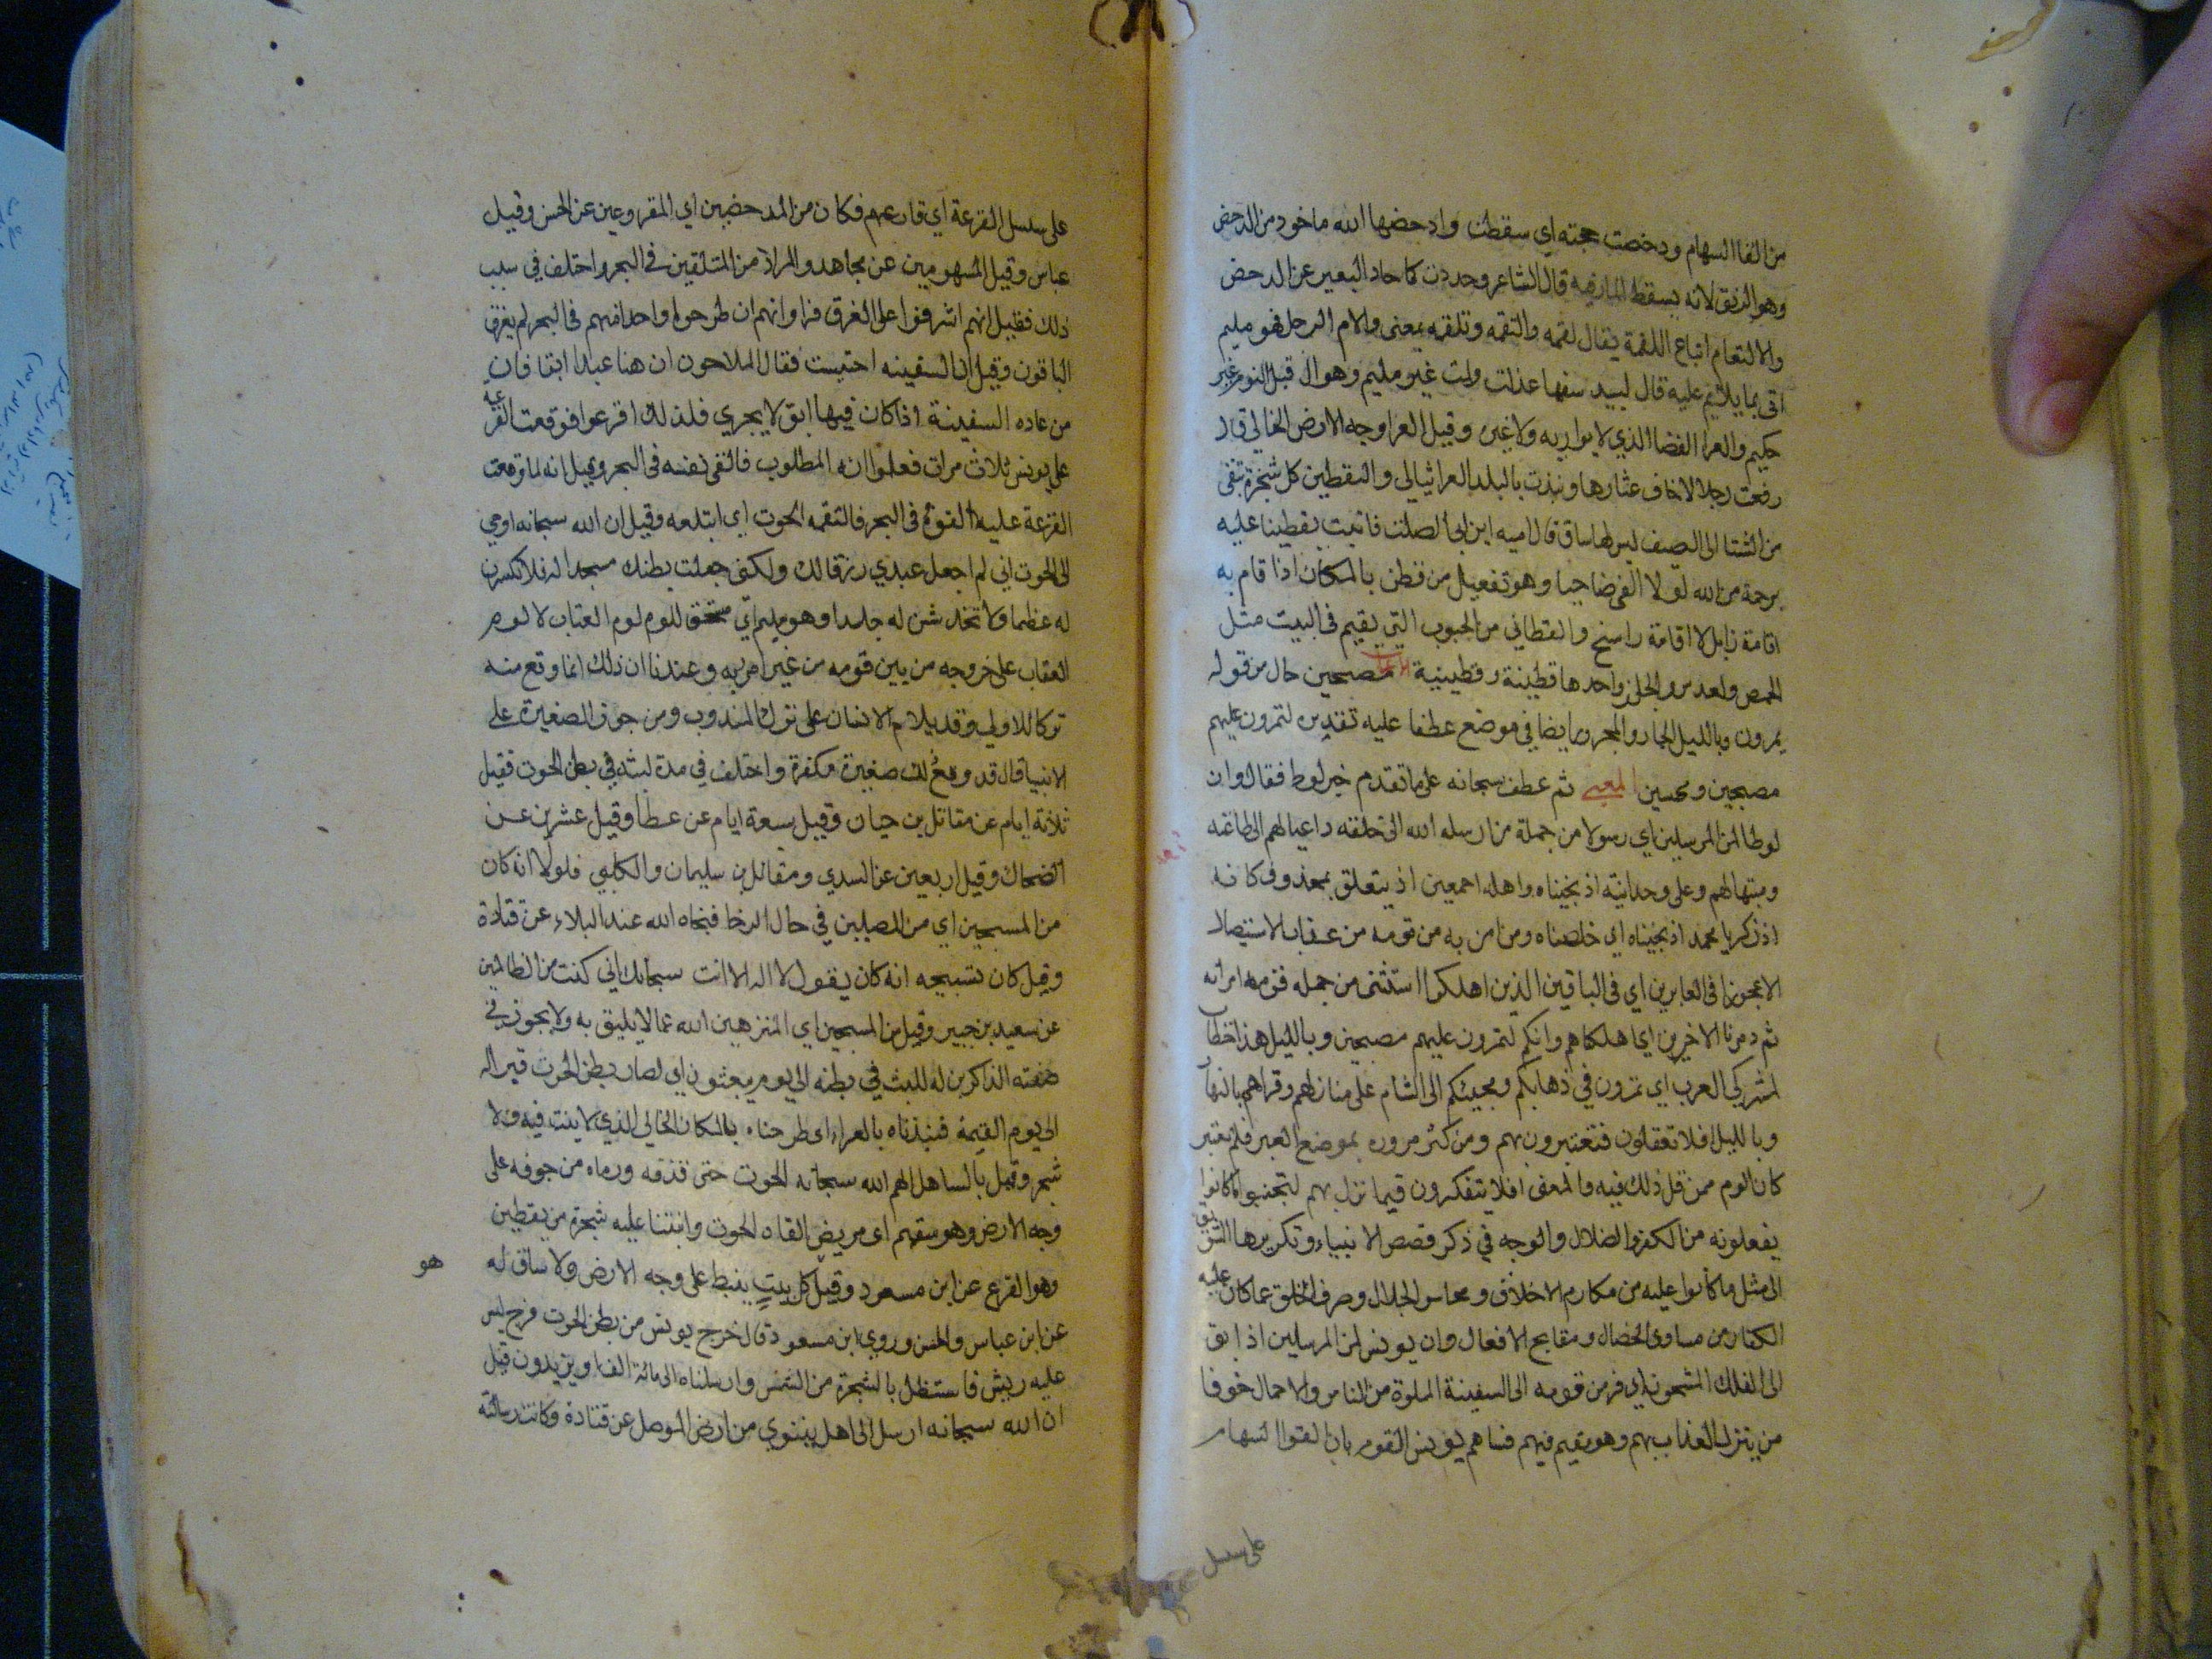 من القا السهام ودحضت حجته اي سقطت وادحضها الله ماخود من الدحض
وهو الزلق لانه يسقط المار فيه قال الشاعر وحدت كما حاد البعير عن الدحض
والالتقام ابتاع اللقمة يقال لقمه والتقمه وتلقمه بمعنى والام الرجل فهو مليم
اتى بما يلام عليه قال لبيد سفها عذلت ولمت غير مليم وهو ال قبل اليوم غير
حكيم والعرا الفضا الذي لا يواريه ولا غيره وقيل العرا وجه الارض الخالي قال
رفعت رجلا لا اخاف عثارها ونبذت بالبلد العرا ثيابي واليقطين كل شجرة تبقى
من الشتا الى الصيف ليس لها ساق قال اميه ابن ابي الصلت فانبت يقطينا عليه
برحمة من الله لولا الله الفى ضاحيا وهو تفعيل من قطن بالمكان اذا قام به
اقامة زايل لا اقامة راسخ والقطاني من الحبوب التي يقيم في البيت مثل
الحمص والعدس والخلر واحدها قطينة وقطينية الاعراب مصبحين حال من قوله
يمرون وبالليل الجار والمجرور ايضا في موضع عطفا عليه تقديره لتمرون عليهم
مصبحين وممسين المعنى ثم عطف سبحانه على ما تقدم خبر لوط فقال وان
لوطا لمن المرسلين اي رسولا من جملة من ارسله الله الى خلقه داعيا لهم الى طاعته
ومنبها لهم وعلى وحدانيته اذ نجيناه واهله اجمعين اذ يتعلق بمحذوف كانه
اذ ذكر يا محمد اذ نجيناه اي خلصناه ومن امن به من قومه من عذاب الاستيصال
الا عجوزا في الغابرين اي في الباقين الذين اهلكوا استثنى من جمله قومه امراته
ثم دمرنا الاخرين اي اهلكناهم وانكم لتمرون عليهم مصبحين وبالليل هذا خطاب
لمشركي العرب اي تمرون في ذهابكم ومجيئكم الى الشام على منازلهم وقراهم بالنهار
وبالليل افلا تعقلون فتعتبرون بهم ومن كثر مروره بموضع العبر فلم يعتبر
كان الوم ممن قل ذلك فيه والمعنى افلا تتفكرون فيما نزل بهم لتجتنبوا ما كانوا
يفعلونه من الكفر والضلال والوجه في ذكر قصص الانبياء وتكريرها التشويق
الى مثل ما كانوا عليه من مكارم الاخلاق ومحاسن الخلال وصرف الخلق عما كان عليه
الكفار من مساوى الخصال ومقابح الافعال وان يونس لمن المرسلين اذ ابق
الى الفلك المشحون اي فر من قومه الى السفينة المملوة من الناس والاحمال خوفا
من ينزل العذاب بهم وهو مقيم فيهم فساهم يونس القوم بان القوا السهام
على سبيل
على سبيل القرعة اي قارعهم فكان من المدحضين اي المقروعين عن الحسن وقيل
عباس وقيل المسهومين عن مجاهد والمراد من الملقين في البحر واختلف في سبب
ذلك فقيل انهم اشرفوا على الغرق فراوا انهم ان طرحوا واحدا منهم في البحر لم يغرق
الباقون وقيل ان السفينه احتبست فقال الملاحون ان هنا عبدا ابقا فان
من عاده السفينة اذا كان فيها ابق لا يجري فلذلك اقرعوا فوقعت القرعة
على يونس ثلاث مرات فعلموا انه المطلوب فالقى نفسه في البحر وقيل انه لما وقعت
القرعة عليه القوه في البحر فالتقمه الحوت اي ابتلعه وقيل ان الله سبحانه اوحي
الى الحوت اني لم اجعل عبدي رزقا لك ولكنى جعلت بطنك مسجدا له فلا تكسرن
له عظما ولا تخدشن له جلدا وهو مليم اي مستحق للوم لوم العتاب لا لوم
العقاب على خروجه من بين قومه من غير امر ربه وعندنا ان ذلك انما وقع منه
تركا للاولى وقد يلام الانسان على ترك المندوب ومن جوز الصغيرة على
الانبيا قال قد وقع ذلك صغيرة مكفرة واختلف في مدة لبثه في بطن الحوت فقيل
ثلاثة ايام عن مقاتل بن حيان وقيل سبعة ايام عن عطا وقيل عشرين عن
الضحاك وقيل اربعين عن السدي ومقاتل بن سليمان والكلبي فلولا انه كان
من المسبحين اي من المصلين في حال الرخا فنجاه الله عند البلاء عن قتادة
وقيل كان تسبيحه انه كان يقول لا اله الا انت سبحانك اني كنت من الظالمين
عن سعيد بن جبير وقيل من المسبحين اي المنزهين الله عما لا يليق به ولا يجوز في
صفته الذاكرين له للبث في بطنه الى يوم يبعثون اي لصار بطن الحوت قبرا له
الى يوم القيمة فنبذناه بالعراء اى طرحناه بالمكان الخالي الذي لا ينبت فيه ولا
شجر وقيل بالساحل الهم الله سبحانه الحوت حتى قذفه ورماه من جوفه على
وجه الارض وهو سقيم اى مريض القاه الحوت وانبتنا عليه شجرة من يقطين
وهو القرع عن ابن مسعود وقيل كل نبت ينبط على وجه الارض ولا ساق له
هو
عن ابن عباس والحسن وروى ابن مسعود قال خرج يونس من بطن الحوت فرخ ليس
عليه ريش فاستظل بالشجرة من الشمس وارسلناه الى مائة الف او يزيدون قيل
ان الله سبحانه ارسل الى اهل نينوي من ارض الموصل عن قتادة وكانت رسالته